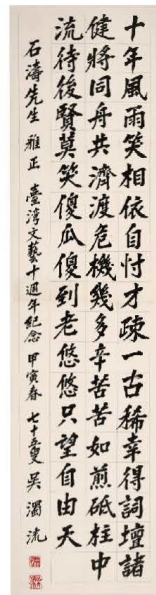 十年風雨笑相依自忖才疎一古稀幸得詞壇諸
健將同舟共濟渡危機幾多辛苦苦如煎砥柱中
流待後賢莫笑傻瓜傻到老悠悠只望自由天
石濤先生 雅正 臺灣文藝十週年紀念 甲寅春 七十五叟 吳濁流